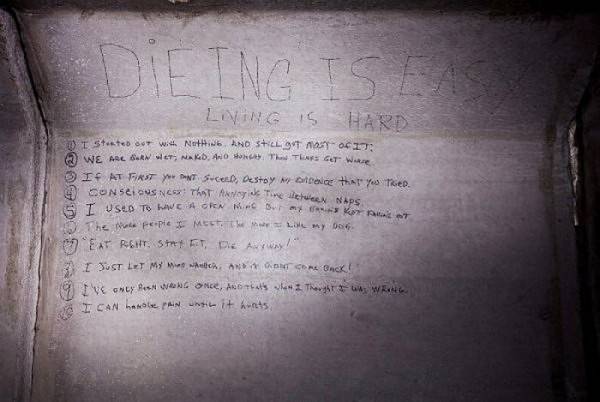 DiEING IS EASY
LIVING IS HARD
① I StARTED OUT with NOTHING. AND Still gOT MOST OF IT:
② WE ARE BORN WET, NAKED, AND HUNGRY. Then THINGS GET WORSE
③ If AT FIRST YOU DONT SUCEED, DEStoy ANY EVIDENCE that YOU TRIED.
④ CONSCIOUSNESS: THAT ANNOYING Time BETWEEN NAPS.
⑤ I USED TO HAVE A OPEN MIND BUT my BRAINS KEPT FALLING OUT
⑥ The MORE PEOPLE I MEET. The MORE I LIKE MY DOG.
⑦ "EAT RIGHT. STAY FIT, DIE ANYWAY!"
⑧ I JUST LET MY MIND WANDER, AND it DIDNT COME BACK!
⑨ I'VE ONLY BEEN WRONG ONCE, AND thats when I Thought I WAS WRONG.
⑩ I CAN handle PAIN UNTIL it huRts.